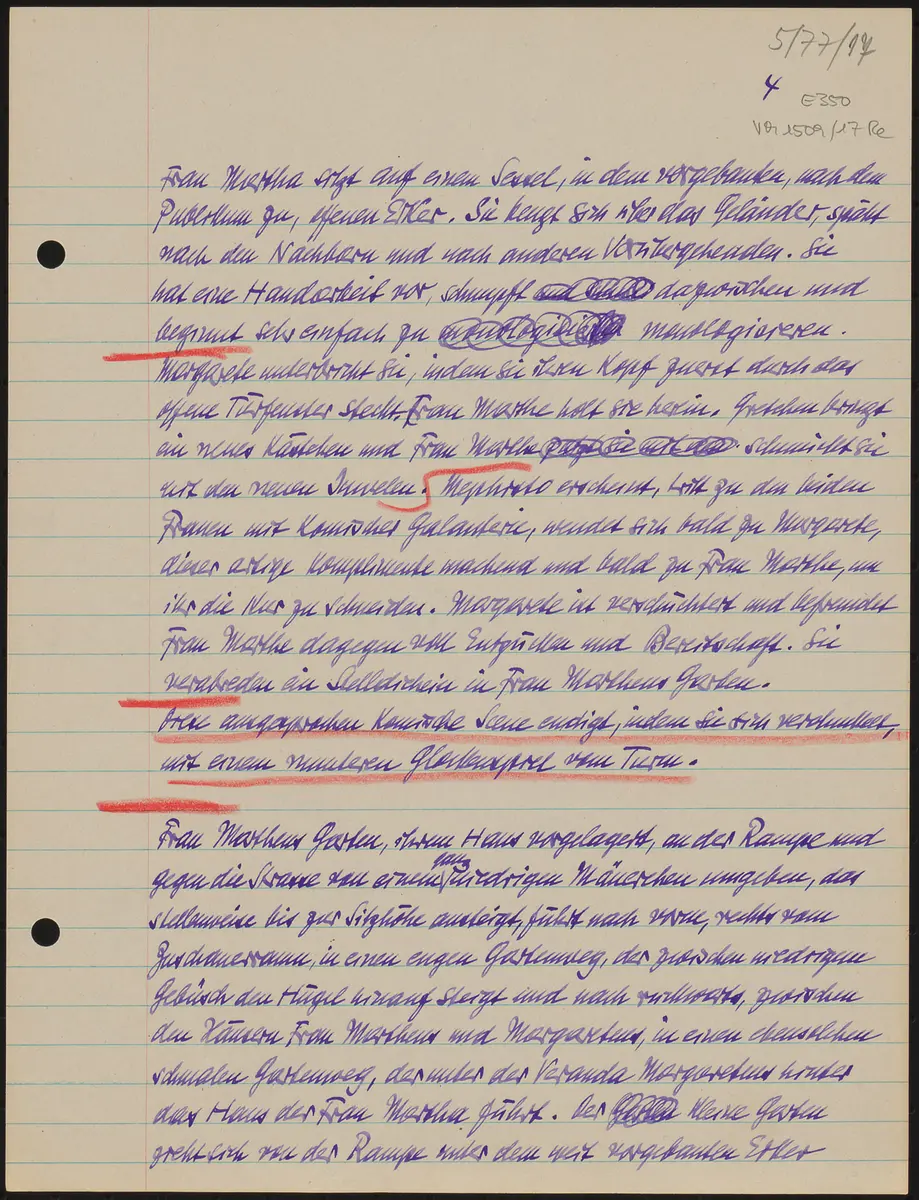 5/77/17
4
E350
VM 1509/17 Re
Frau Martha sitzt auf einem Sessel, in dem vorgebauten, nach dem
Publikum zu, offenen Erker. Sie beugt sich über das Geländer, späht
nach den Nachbarn und nach anderen Vorübergehenden. Sie
hat eine Handarbeit vor, schnupft dazwischen und
beginnt sehr einfach zu monologisieren.
Margarete unterbricht sie, indem sie ihren Kopf zuerst durch das
offene Türfenster steckt. Frau Marthe holt sie herin. Gretchen bringt
ein neues Kästchen und Frau Marthe schmückt sie
mit den neuen Juwelen. Mephisto erscheint, tritt zu den beiden
Frauen mit komischer Galanterie, wendet sich bald zu Margarete,
dieser artige Komplimente machend und bald zu Frau Marthe, um
ihr die Kur zu schneiden. Margarete ist verschüchtert und befremdet
Frau Marthe dagegen voll Entzücken und Bereitschaft. Sie
verabreden ein Stelldichein in Frau Marthens Garten.
Diese ausgesprochen komische Scene endigt, indem sie sich verdunkelt,
mit einen munteren Glockenspiel vom Turm.
Frau Marthens Garten, ihrem Haus vorgelagert, an der Rampe und
gegen die Strasse von einem ganz niedrigen Mäuerchen umgeben, das
stellenweise bis zur Sitzhöhe ansteigt, führt nach vorne, rechts vom
Zuschauerraum, in einen engen Gartenweg, der zwischen niedrigem
Gebüsch den Hügel hinauf steigt und nach rückwärts, zwischen
den Häusern Frau Marthens und Margaretens, in einen ebensolchen
schmalen Gartenweg, der unter der Veranda Margaretens hinter
das Haus der Frau Martha führt. Der kleine Garten
zieht sich von der Rampe unter dem weit vorgebauten Erker